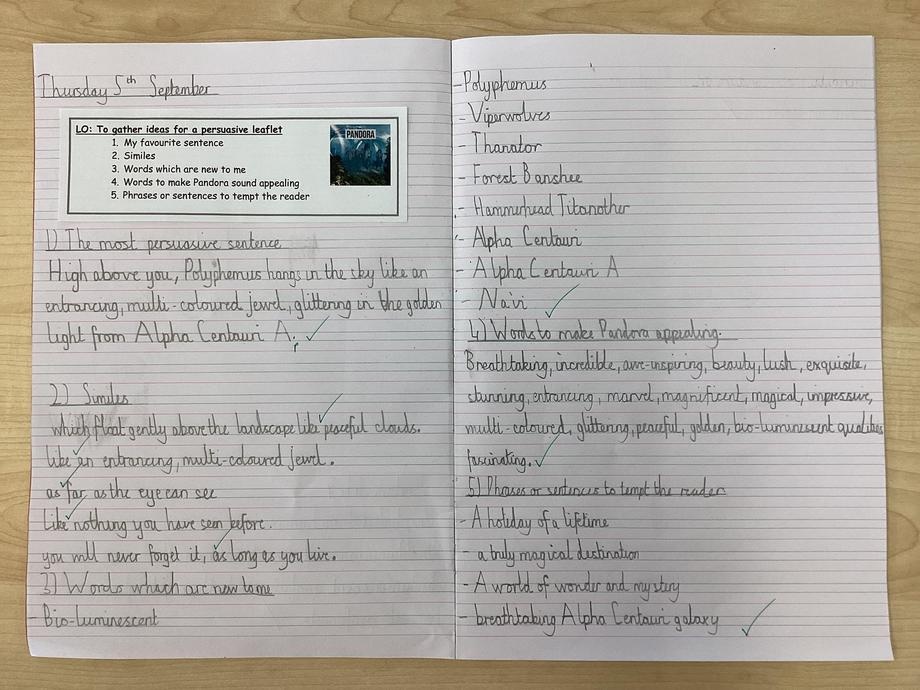 Thursday 5th September
LO: To gather ideas for a persuasive leaflet
1. My favourite sentence
2. Similes
3. Words which are new to me
4. Words to make Pandora sound appealing
5. Phrases or sentences to tempt the reader
PANDORA
1) The most persuasive sentence
High above you, Polyphemus hangs in the sky like an
entrancing, multi-coloured jewel, glittering in the golden
light from Alpha Centauri A.
2) Similes
which float gently above the landscape like peaceful clouds.
like an entrancing, multi-coloured jewel.
as far as the eye can see
Like nothing you have seen before.
you will never forget it, as long as you live.
3) Words which are new to me
- Bio-luminescent
- Polyphemus
- Viperwolves
- Thanator
- Forest Banshee
- Hammerhead Titanother
- Alpha Centauri
- Alpha Centauri A
- Na'vi
4) Words to make Pandora appealing.
Breathtaking, incredible, awe-inspiring, beauty, lush, exquisite,
stunning, entrancing, marvel, magnificent, magical, impressive,
multi-coloured, glittering, peaceful, golden, bio-luminescent qualities
fascinating.
5) Phrases or sentences to tempt the reader
- A holiday of a lifetime
- a truly magical destination
- A world of wonder and mystery
- breathtaking Alpha Centauri galaxy